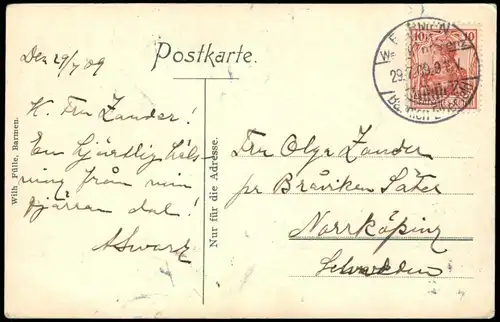 Postkarte.
Den 29/7 09
K. Fru Zander!
En hjärtlig häls-
ning från min
fjärran dal!
ASwartz
Wilh. Fülle, Barmen.
Nur für die Adresse.
Fru Olga Zander
pr Bråviken Säter
Norrköping
Schweden
10 10
BARMEN
29.7.09.